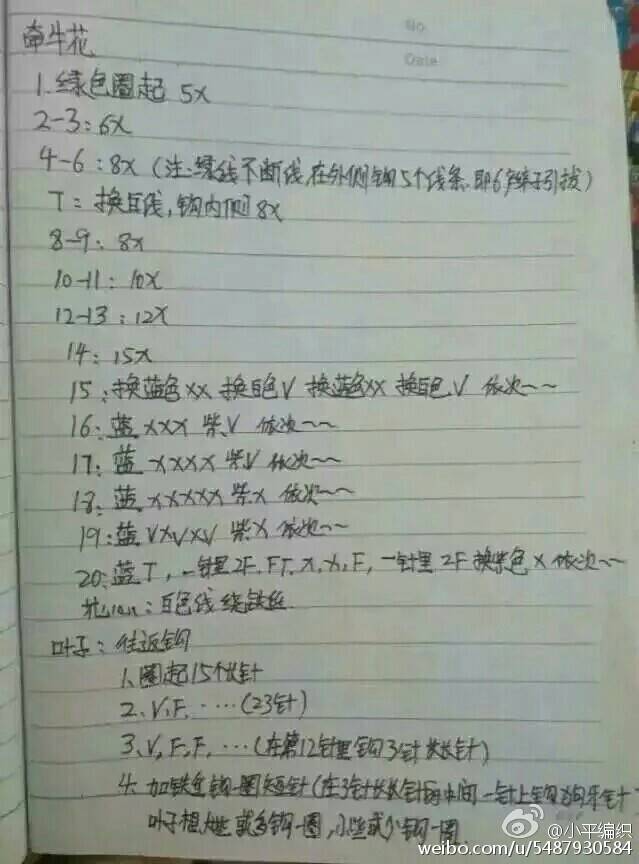 No
Date
牵牛花
1.绿色圈起 5X
2-3:6X
4-6:8X(注:绿线不断线,在外侧钩5个线条.即6个辫子引拔)
7=换白线,钩内侧8X
8-9:8X
10-11:10X
12-13:12X
14:15X
15:换蓝色XX 换白色V 换蓝色XX 换白色V 依次~~
16:蓝XXX 柴V 依次~~
17:蓝 XXXX 柴V 依次~~
18:蓝 XXXXX 柴X 依次~~
19:蓝VXVXV 柴X 依次~~
20:蓝T,一针里2F.FT.X,X,F,一针里2F换紫色X依次~~
花:白色线绕铁丝
叶子:往返钩
1.圈起15个长针
2.V.F.……(23针)
3.V,F,F,…(在第12针里钩3针长长针)
4.加铁丝钩一圈短针(在3针长长针的中间一针上钩狗牙针
叶子想大些或多钩一圈,小些或少钩一圈
@小平编织
weibo.com/u/5487930584